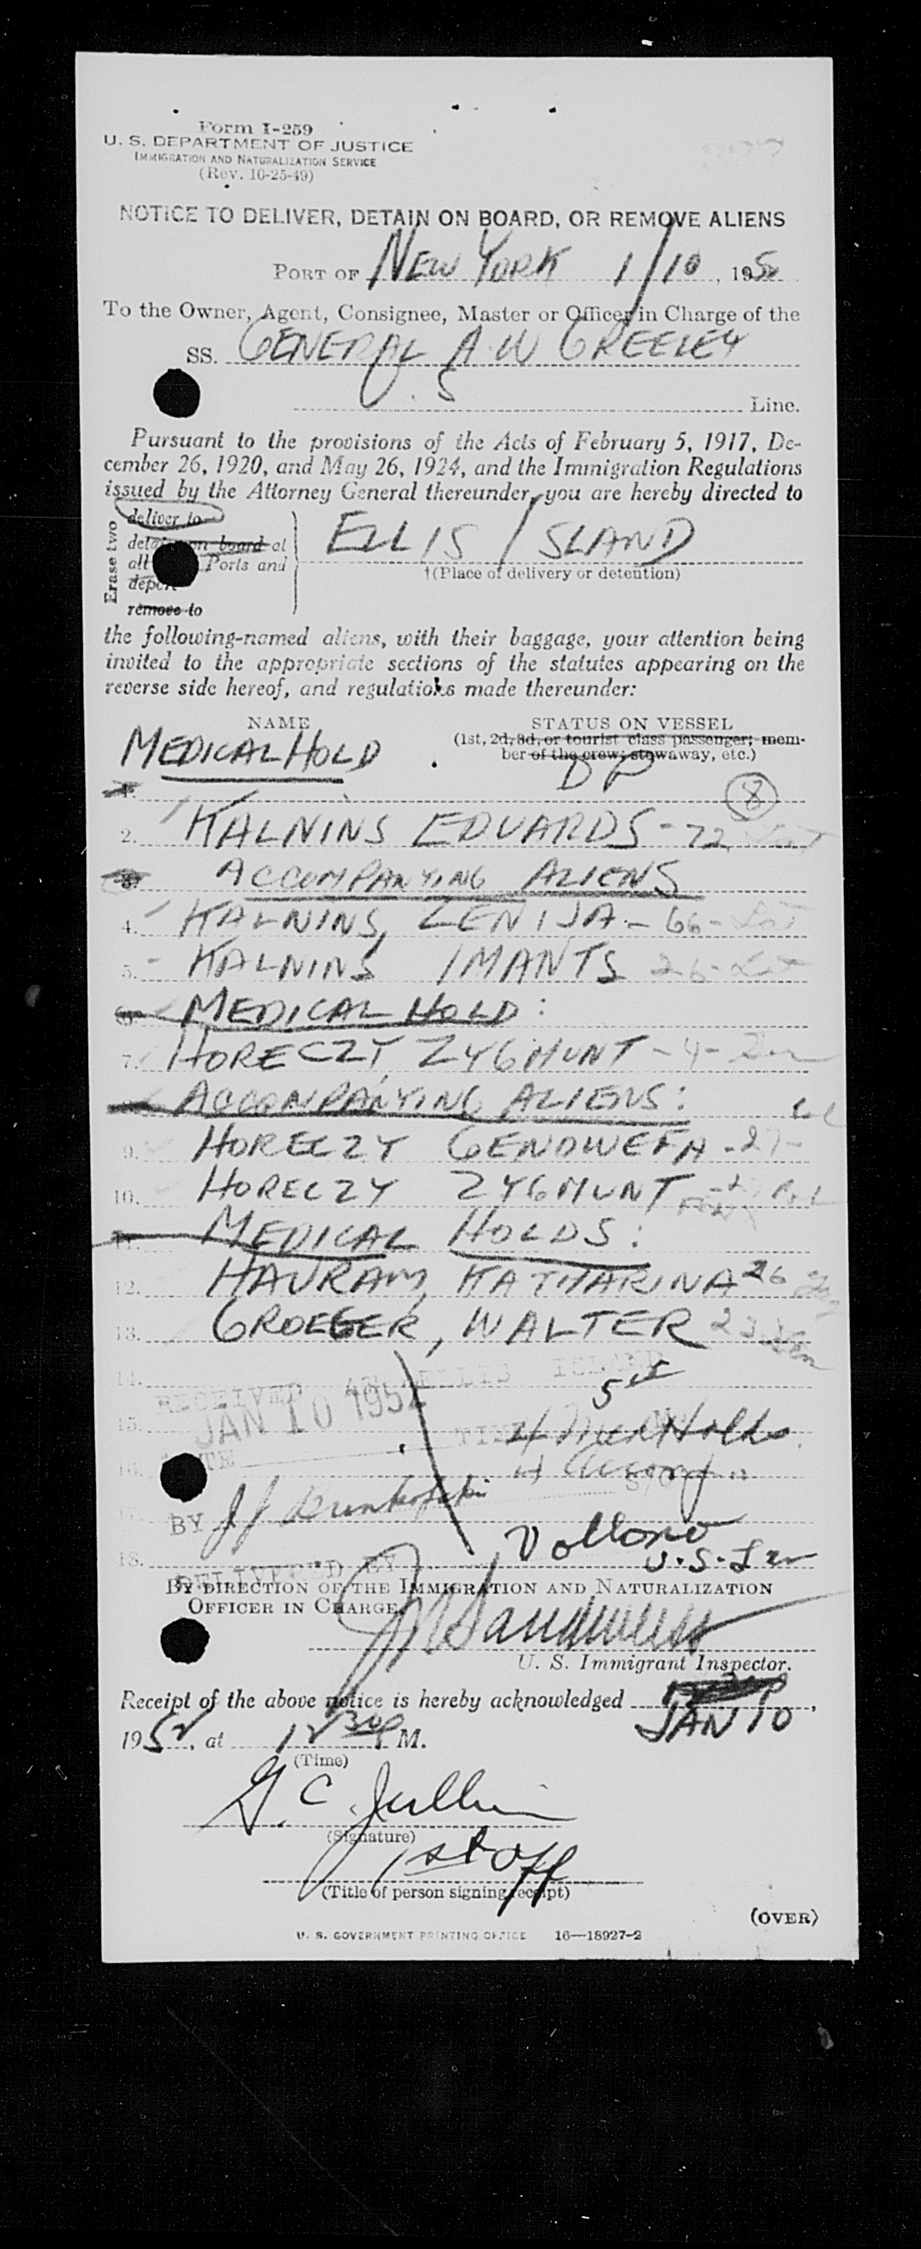 Form I-259
U. S. DEPARTMENT OF JUSTICE
IMMIGRATION AND NATURALIZATION SERVICE
(Rev. 10-25-49)
NOTICE TO DELIVER, DETAIN ON BOARD, OR REMOVE ALIENS
PORT OF NEW YORK 1/10, 195
To the Owner, Agent, Consignee, Master or Officer in Charge of the
SS. GENERAL A W GREELEY
Line.
Pursuant to the provisions of the Acts of February 5, 1917, De-
cember 26, 1920, and May 26, 1924, and the Immigration Regulations
issued by the Attorney General thereunder, you are hereby directed to
Erase two
deliver to
detain on board at
all Ports and
deport
remove to
ELLIS ISLAND
†(Place of delivery or detention)
the following-named aliens, with their baggage, your attention being
invited to the appropriate sections of the statutes appearing on the
reverse side hereof, and regulations made thereunder:
NAME STATUS ON VESSEL
(1st, 2d, 3d, or tourist class passenger; mem-
ber of the crew; stowaway, etc.)
MEDICAL HOLD DP
1. 8
2. KALNINS EDUARDS - 72
3. ACCOMPANYING ALIENS
4. KALNINS, ZENIJA - 66 - Lat
5. KALNINS IMANTS 26 - Lat
6. MEDICAL HOLD:
7. HORECZY, ZYGMUNT - 4 -
ACCOMPANYING ALIENS:
9. HORECZY GENOWEFA - 27 -
10. HORECZY ZYGMUNT
11. MEDICAL HOLDS:
12. HAVRAM, KATHARINA 26
13. GROEGER, WALTER 23
14. RECEIVED AT ELLIS ISLAND
15. JAN 10 1952
4 Med Holds
16. DATE TIME
4 Accomp
17. BY J J
18. DELIVERED BY
U.S. Im
BY DIRECTION OF THE IMMIGRATION AND NATURALIZATION
OFFICER IN CHARGE
U. S. Immigrant Inspector.
Receipt of the above notice is hereby acknowledged JAN 10,
1952, at 12 30 P M.
(Time)
G. C.
(Signature)
1st Off
(Title of person signing receipt)
(OVER)
U. S. GOVERNMENT PRINTING OFFICE 16—18927-2